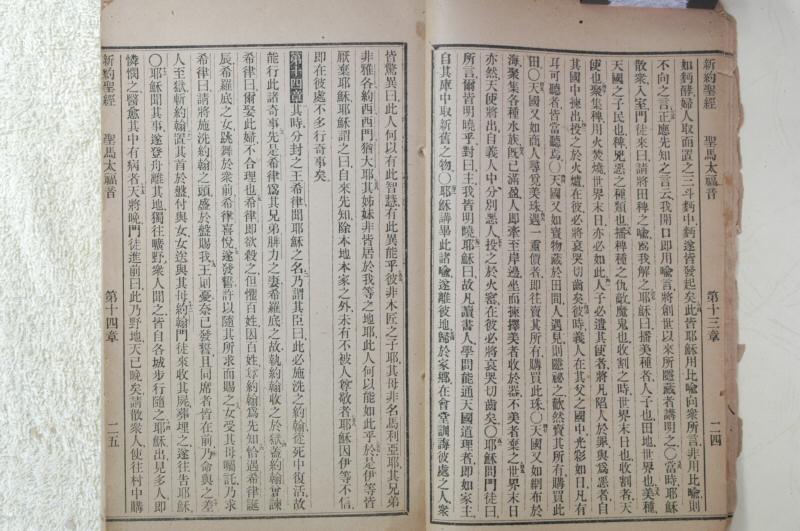 新約聖經 聖馬太福音 第十三章 二四
如麪酵婦人取而置之三斗麪中麪遂皆發起矣此皆耶穌用比喻向衆所言非用比喻則
不向之言正應先知之言云我開口即用喻言將創世以來所隱藏者講明之〇當時耶穌
散衆入室門徒來曰請將田稗之喻爲我解之耶穌曰播美種者人子也田地世界也美種
天國之子民也稗兇惡之種類也播稗種之仇敵魔鬼也收割之時世界末日也收割者天
使也聚集稗用火焚燒世界末日亦必如此人子必遣其使者將凡陷人於罪與爲惡者自
其國中揀出投之於火爐在彼必將哀哭切齒矣彼時義人在其父之國中光彩如日凡有
耳可聽者皆當聽焉〇天國又如寶物藏於田間人遇見則隱祕之歡然賣其所有購買此
田〇天國又如商人尋覓美珠遇一重價者即往賣其所有購買此珠〇天國又如網布於
海聚集各種水族旣已滿盈人即牽至岸邊坐而揀擇美者收於器不美者棄之世界末日
亦然天使將出自義人中分別惡人投之於火窰在彼必將哀哭切齒矣〇耶穌問門徒曰
所言爾皆明曉乎對曰主我皆明曉耶穌曰故凡讀書人學問能通天國道理者即如家主
自其庫中取新舊之物〇耶穌講畢此諸喻遂離彼地歸於家鄉在會堂訓誨彼處之人衆
皆驚異曰此人何以有此智慧有此異能乎彼非木匠之子耶其母非名馬利亞耶其兄弟
非雅各約西西門猶大耶其姊妹非皆居於我等之地耶此人何以能如此乎於是伊等皆
厭棄耶穌耶穌謂之曰自來先知除本地本家之外未有不被人尊敬者耶穌因伊等不信
即在彼處不多行奇事矣
第十四章其時分封之王希律聞耶穌之名乃謂其臣曰此必施洗之約翰從死中復活故
能行此諸奇事先是希律爲其兄弟腓力之妻希羅底之故執約翰收之於獄蓋約翰會諫
希律曰爾娶此婦不合理也希律即欲殺之但懼百姓因百姓尊約翰爲先知恰遇希律誕
辰希羅底之女跳舞於衆前希律喜悅遂發誓許以隨其所求而賜之女受其母囑託乃求
希律曰請將施洗約翰之頭盛於盤賜我王則憂奈已發誓且同席者皆在前乃命與之差
人至獄斬約翰置其首於盤付與女女送與其母約翰門徒來收其屍葬埋之遂往告耶穌
〇耶穌聞其事遂登舟離其地獨往曠野衆人聞之皆自各城步行隨之耶穌出見多人即
憐憫之醫愈其中有病者天將晚門徒進前曰此乃野地天已晚矣請散衆人使往村中購
新約聖經 聖馬太福音 第十四章 二五